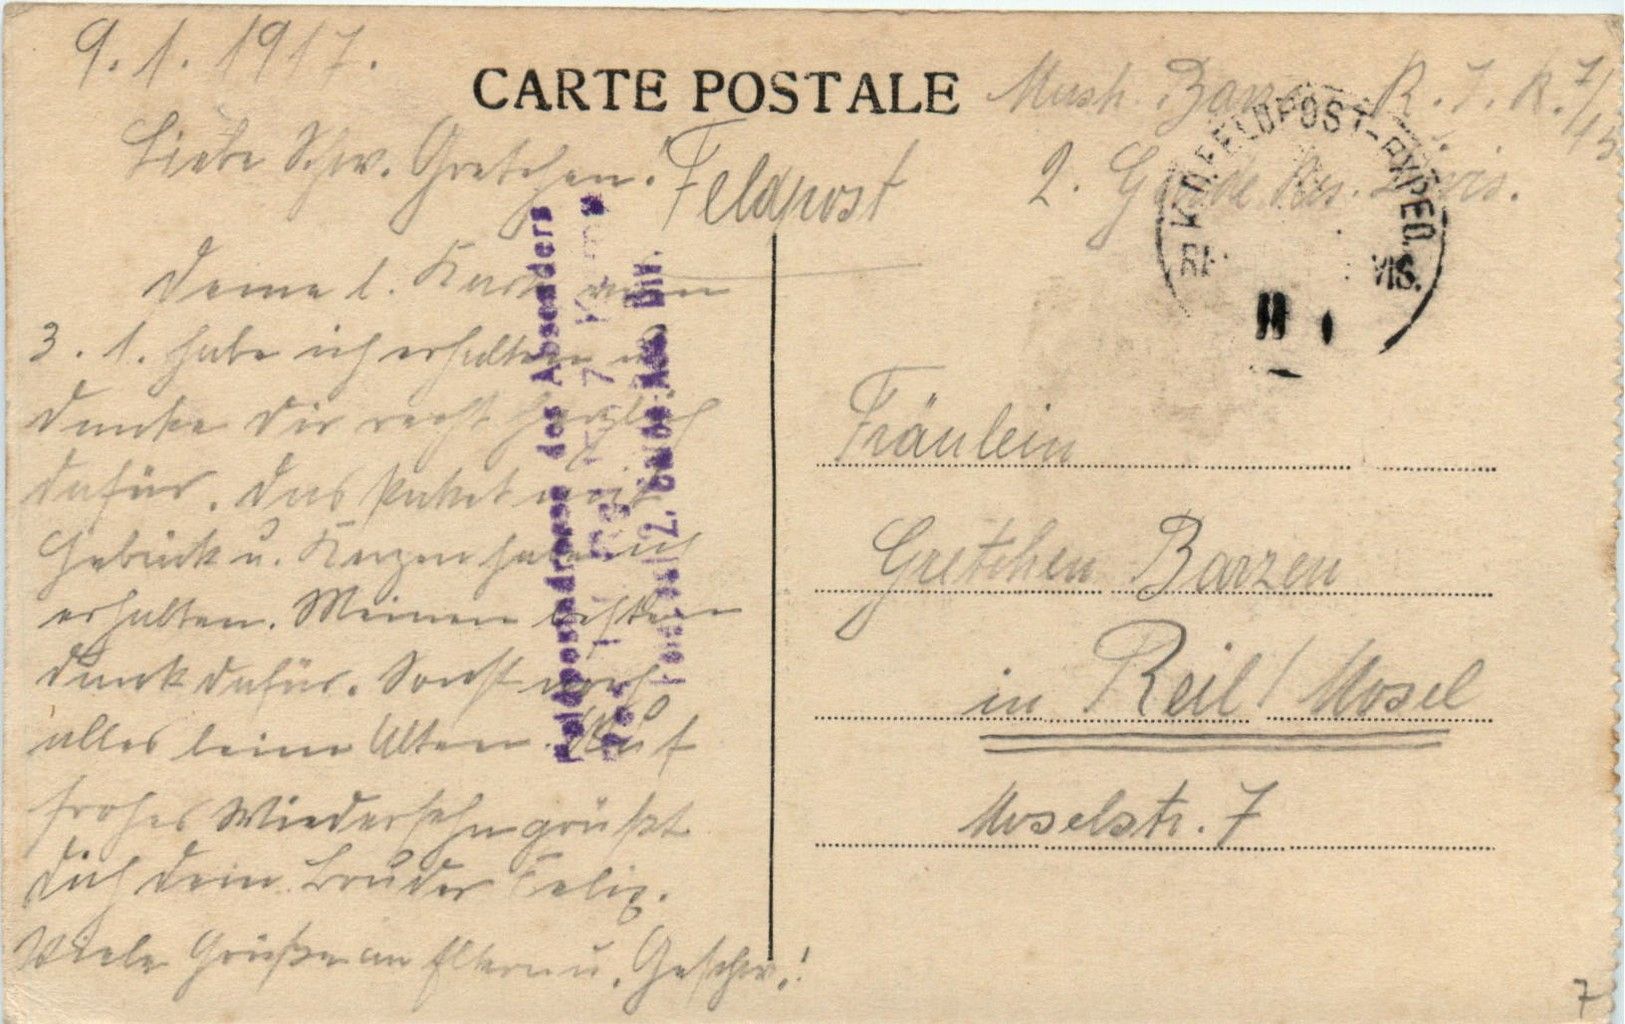 9. 1. 1917.
CARTE POSTALE
Liebe Schw. Gretchen!
Feldpost
Deine l. Karte vom
3. 1. habe ich erhalten u.
danke Dir recht herzlich
dafür. Das Paket mit
Gebäck u. Kerzen habe ich
erhalten. Meinen besten
Dank dafür. Sonst noch
alles beim Alten. Auf
frohes Wiedersehn grüßt
Dich Dein Bruder Felix.
Viele Grüße an Eltern u. Geschw.!
Musk. Barzen R. I. R. 7/15
2. Garde Res. Divis.
K.D. FELDPOST-EXPED.
Feldpostadresse des Absenders
Res. Rgt. 7 Komp
2. Garde-Res. Div.
Fräulein
Gretchen Barzen
in Reil / Mosel
Moselstr. 7
7